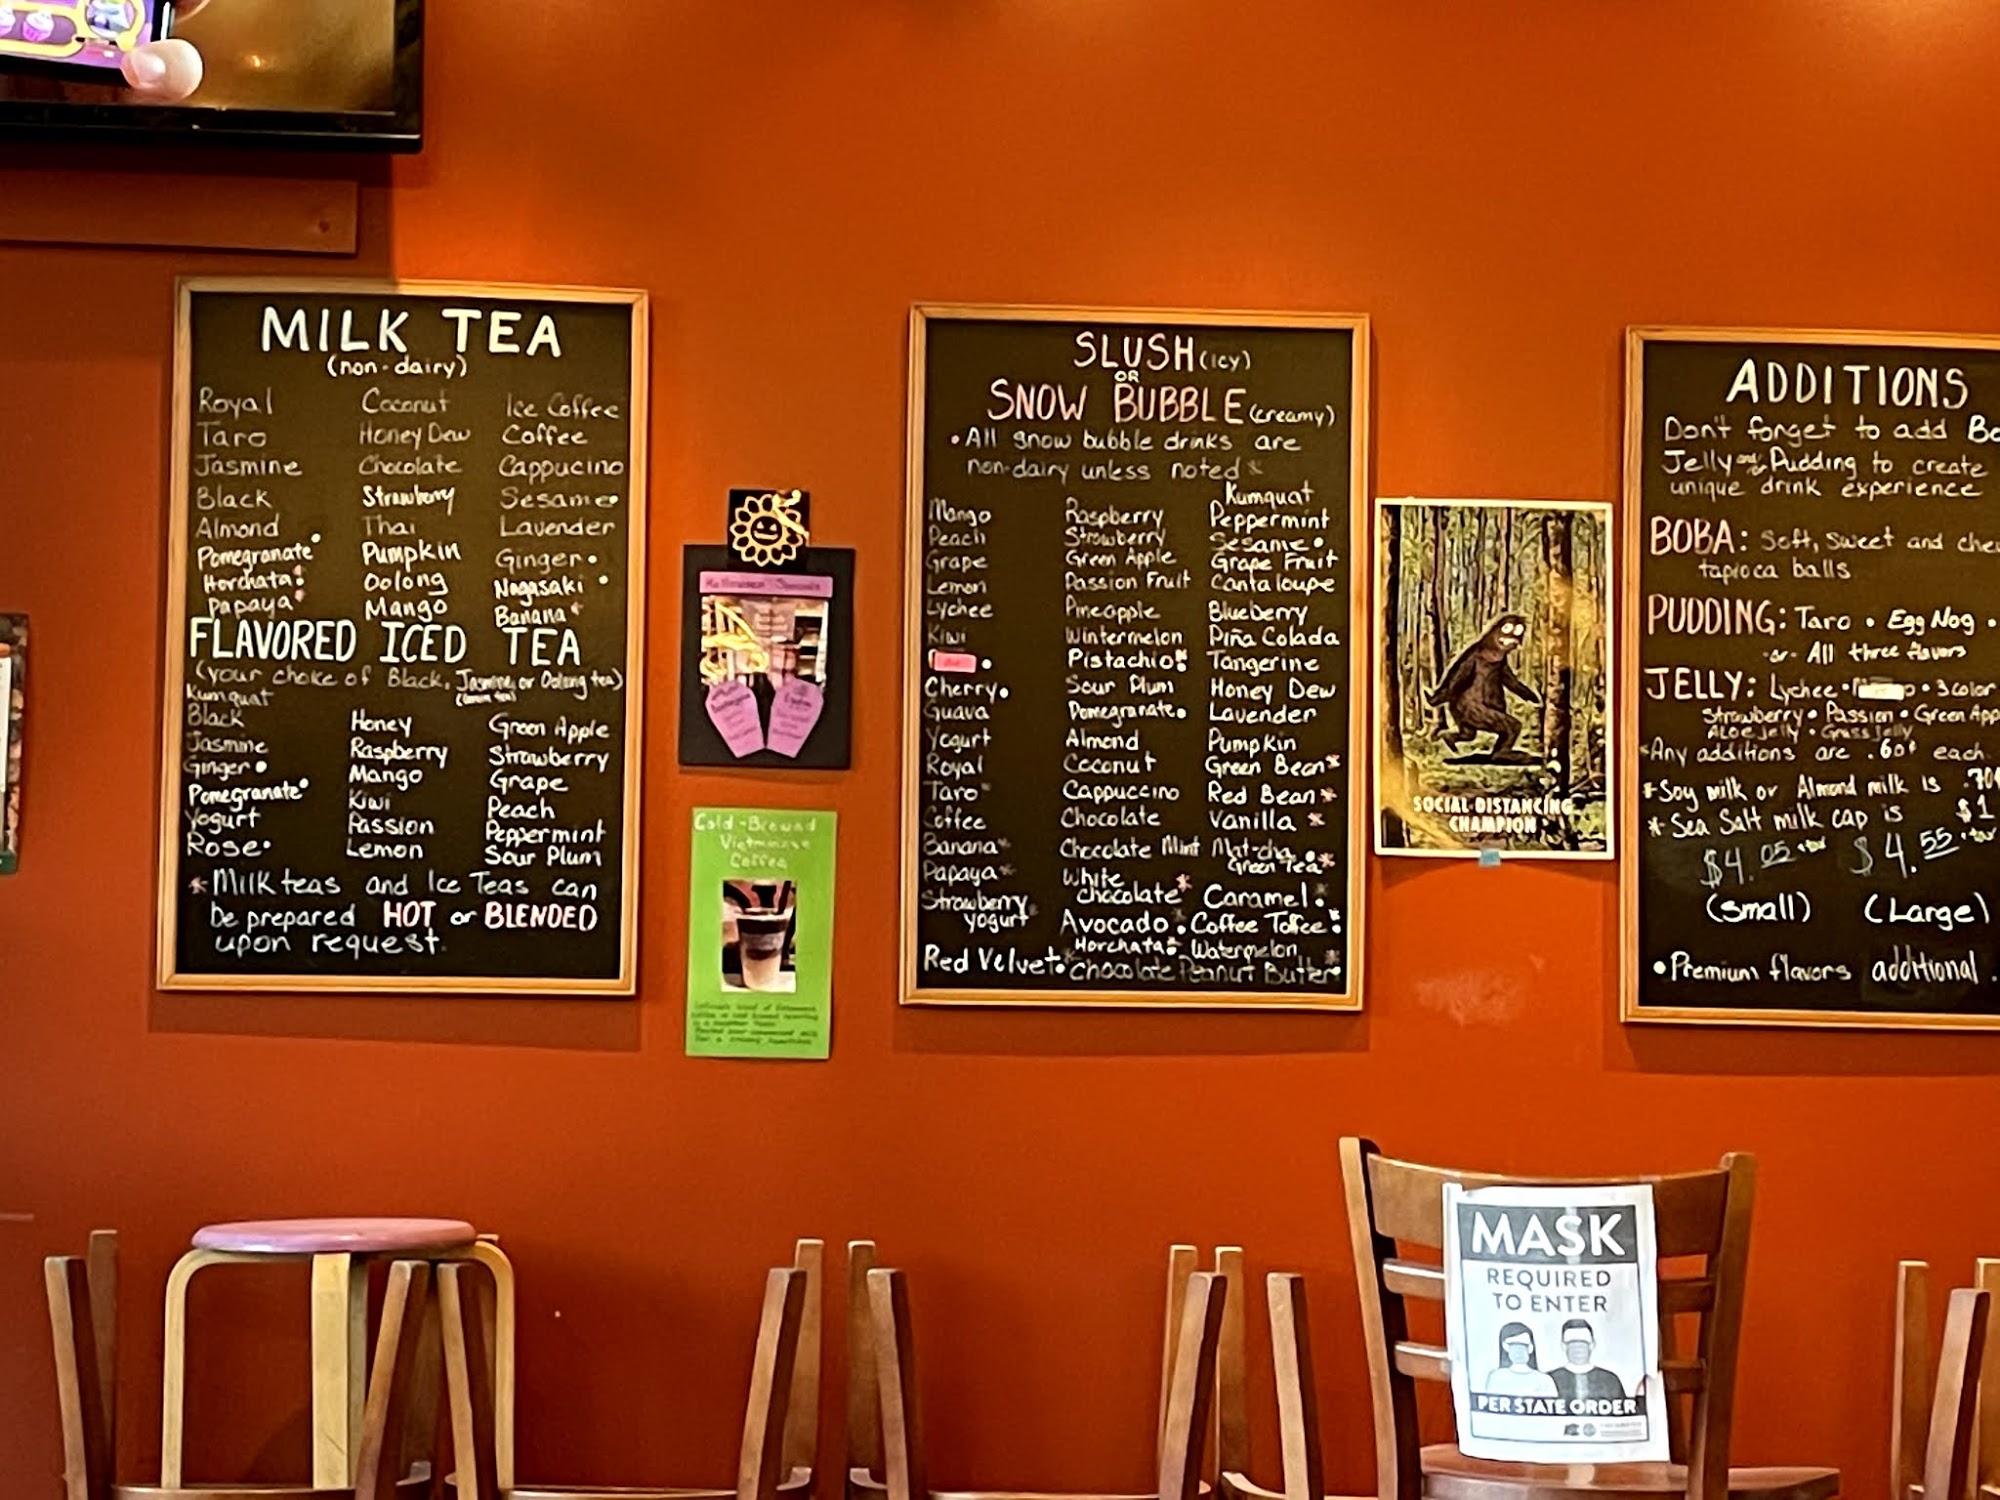 MILK TEA
(non-dairy)
Royal Coconut Ice Coffee
Taro Honey Dew Coffee
Jasmine Chocolate Cappucino
Black Strawberry Sesame•
Almond Thai Lavender
Pomegranate• Pumpkin Ginger•
Horchata• Oolong Nagasaki •
Papaya* Mango Banana*
FLAVORED ICED TEA
(your choice of Black, Jasmine or Oolong tea)
Kumquat
Black Honey Green Apple
Jasmine Raspberry Strawberry
Ginger• Mango Grape
Pomegranate• Kiwi Peach
Yogurt Passion Peppermint
Rose• Lemon Sour Plum
*Milk teas and Ice Teas can
be prepared HOT or BLENDED
upon request.
Cold-Brewed
Vietnamese
Coffee
SLUSH (icy)
OR
SNOW BUBBLE (creamy)
•All snow bubble drinks are
non-dairy unless noted*
Kumquat
Mango Raspberry Peppermint
Peach Strawberry Sesame•
Grape Green Apple Grape Fruit
Lemon Passion Fruit Cantaloupe
Lychee Pineapple Blueberry
Kiwi Wintermelon Piña Colada
• Pistachio Tangerine
Cherry• Sour Plum Honey Dew
Guava Pomegranate• Lavender
Yogurt Almond Pumpkin
Royal Coconut Green Bean*
Taro* Cappuccino Red Bean*
Coffee Chocolate Vanilla *
Banana* Chocolate Mint Mat-cha
Green Tea*
Papaya* White
chocolate* Caramel•
Strawberry
yogurt* Avocado• Coffee Toffee
Horchata Watermelon
Red Velvet• Chocolate Peanut Butter
SOCIAL DISTANCING
CHAMPION
ADDITIONS
Don't forget to add
Jelly and/or Pudding to create
unique drink experience
BOBA: Soft, sweet and
tapioca balls
PUDDING: Taro • Egg Nog •
-or- All three flavors
JELLY: Lychee • 3color
Strawberry • Passion • Green
Aloe Jelly • Grass jelly
*Any additions are .60¢ each.
*Soy milk or Almond milk is .70¢
* Sea Salt milk cap is $1
$4.05 +tax $4.55 +tax
(Small) (Large)
•Premium flavors additional.
MASK
REQUIRED
TO ENTER
PER STATE ORDER